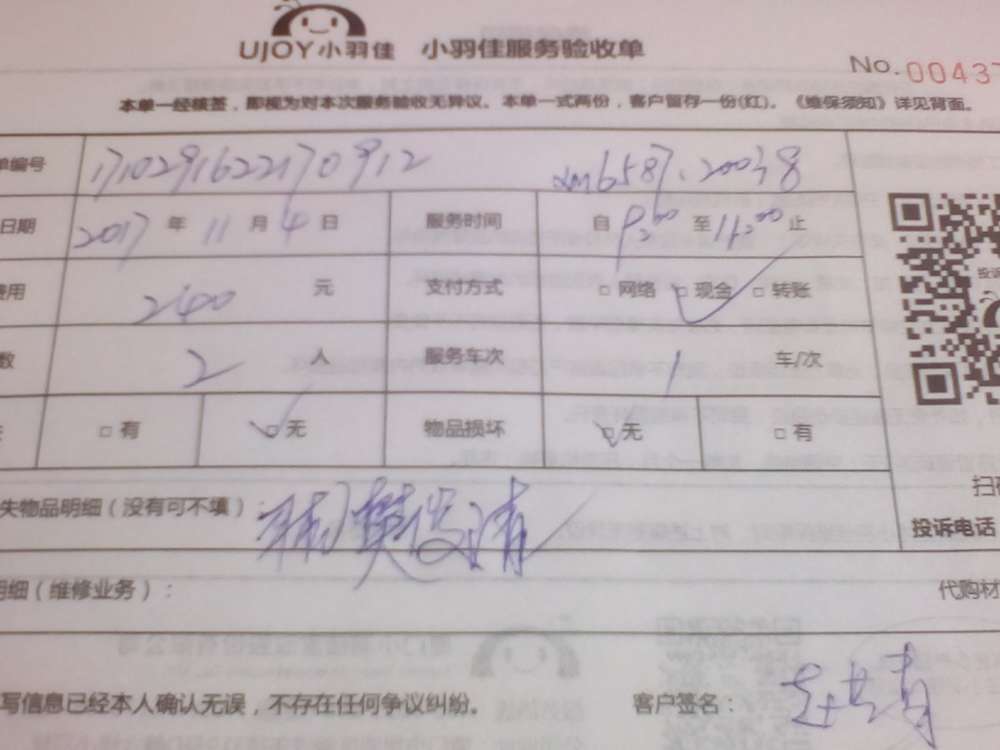 UJOY小羽佳 小羽佳服务验收单
No. 00437
本单一经核签，即视为对本次服务验收无异议。本单一式两份，客户留存一份(红)。《维保须知》详见背面。
单编号 1710291622170912 xm6587.20038
日期 2017 年 11 月 4 日 服务时间 自 9:00 至 11:00 止
费用 240 元 支付方式 □ 网络 □ 现金 □ 转账
数 2 人 服务车次 1 车/次
□ 有 □ 无 物品损坏 □ 无 □ 有
失物品明细（没有可不填）:
扫
投诉电话
明细（维修业务）:
代购材
写信息已经本人确认无误，不存在任何争议纠纷。 客户签名: